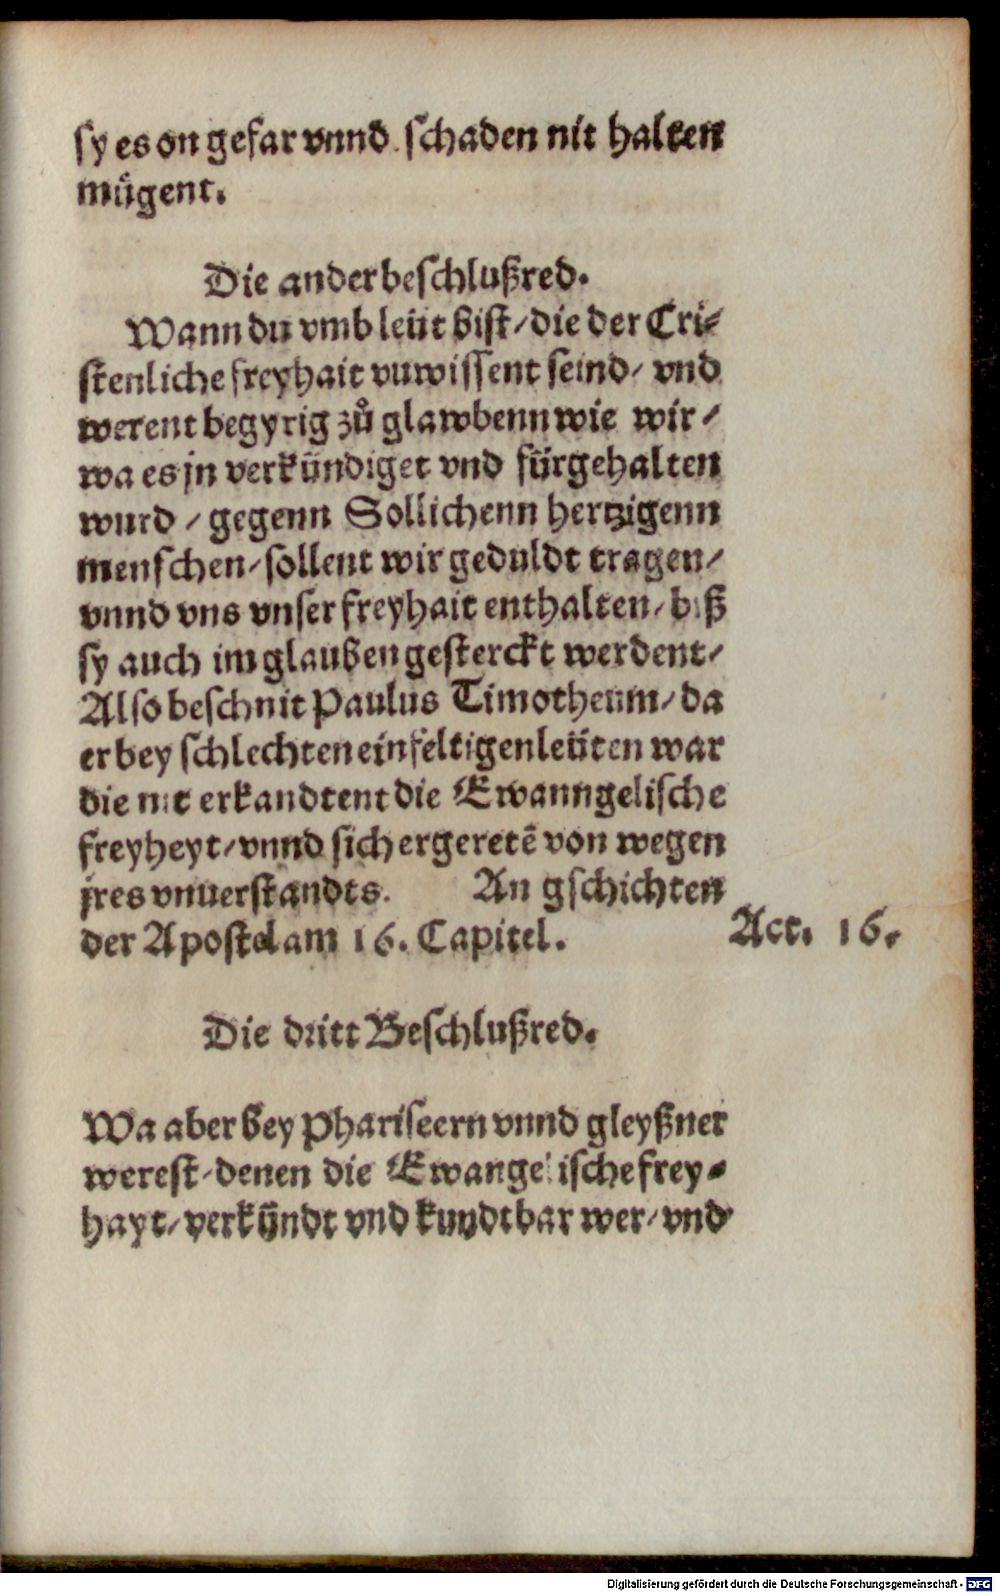 sy es on gefar vnnd schaden nit halten
mügent.
Die ander beschlußred.
Wann du vmb leüt bist/ die der Cri⸗
stenliche freyhait vnwissent seind/ vnd
werent begyrig zů glawbenn wie wir/
wa es jn verkündiget vnd fürgehalten
wurd/ gegenn Sollichenn hertzigenn
menschen/ sollent wir geduldt tragen/
vnnd vns vnser freyhait enthalten/ biß
sy auch im glauben gesterckt werdent/
Also beschnit Paulus Timotheum/ da
er bey schlechten einfeltigen leüten war
die nit erkandtent die Ewanngelische
freyheyt/ vnnd sich ergeretẽ von wegen
jres vnuerstandts. An gschichten
der Apostel am 16. Capitel.
Act. 16.
Die dritt Beschlußred.
Wa aber bey Phariseern vnnd gleyßner
werest/ denen die Ewangelische frey⸗
hayt/ verkündt vnd kundtbar wer/ vnd
Digitalisierung gefördert durch die Deutsche Forschungsgemeinschaft - DFG